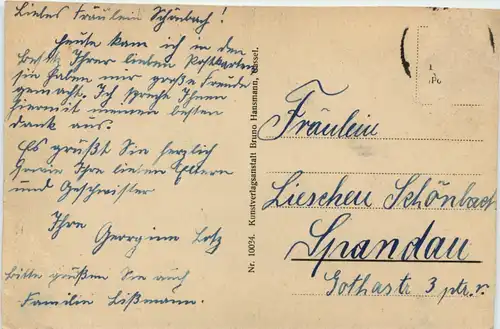 Liebes Fräulein Schönbach!
Heute kam ich in den
besitz Ihrer lieben Postkarten
sie haben mir große Freude
gemacht. Ich spreche Ihnen
hiermit meinen besten
dank aus.
Es grüßt Sie herzlich
sowie Ihre lieben Eltern
und Geschwister
Ihre
Georgine Lotz
bitte grüßen Sie auch
Familie Lißmann.
Nr. 10034. Kunstverlagsanstalt Bruno Hansmann, Cassel.
Fräulein
Lieschen Schönbach
Spandau
Gothastr 3 ptr. r.